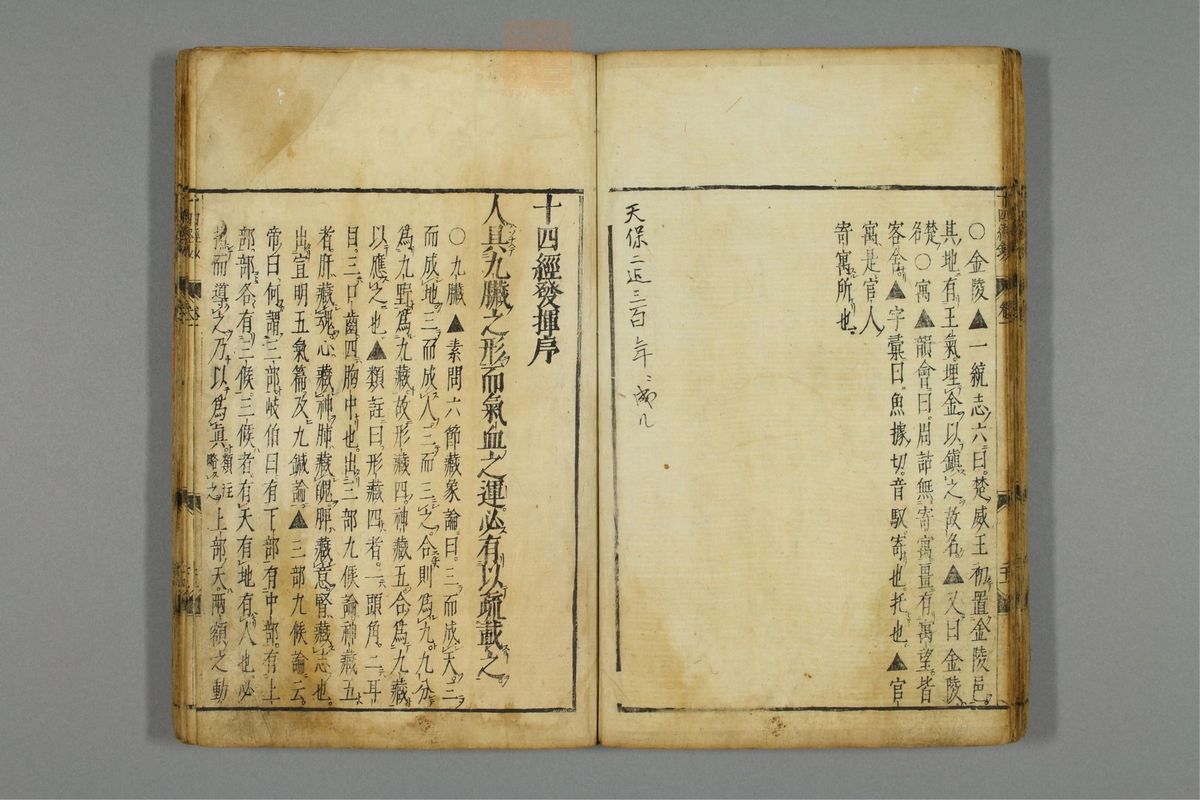 ○金陵▲一統志六曰楚威王初置金陵邑
其地有王氣埋金以鎮之故名▲又曰金陵
楚○寓▲韻會曰周詩無寄寓畺有寓望皆
客舍▲字彙曰魚據切音馭寄也托也▲官
寓是官人
寄寓所也
天保二迄三百年
十四經發揮序
人具九臟之形而氣血之運必有以疏載之
○九臟▲素問六節藏象論曰三而成天三
而成地三而成人三而三之合則為九九分
為九野為九藏故形藏四神藏五合為九藏
以應之也▲類註曰形藏四者一頭角二耳
目三口齒四胸中也出三部九候論神藏五
者肝藏魂心藏神肺藏魄脾藏意腎藏志也
出宣明五氣篇及九鍼論▲三部九候論云
帝曰何謂三部岐伯曰有下部有中部有上
部部各有三候三候者有天有地有人也必
指而導之乃以為真類註略之上部天兩額之動